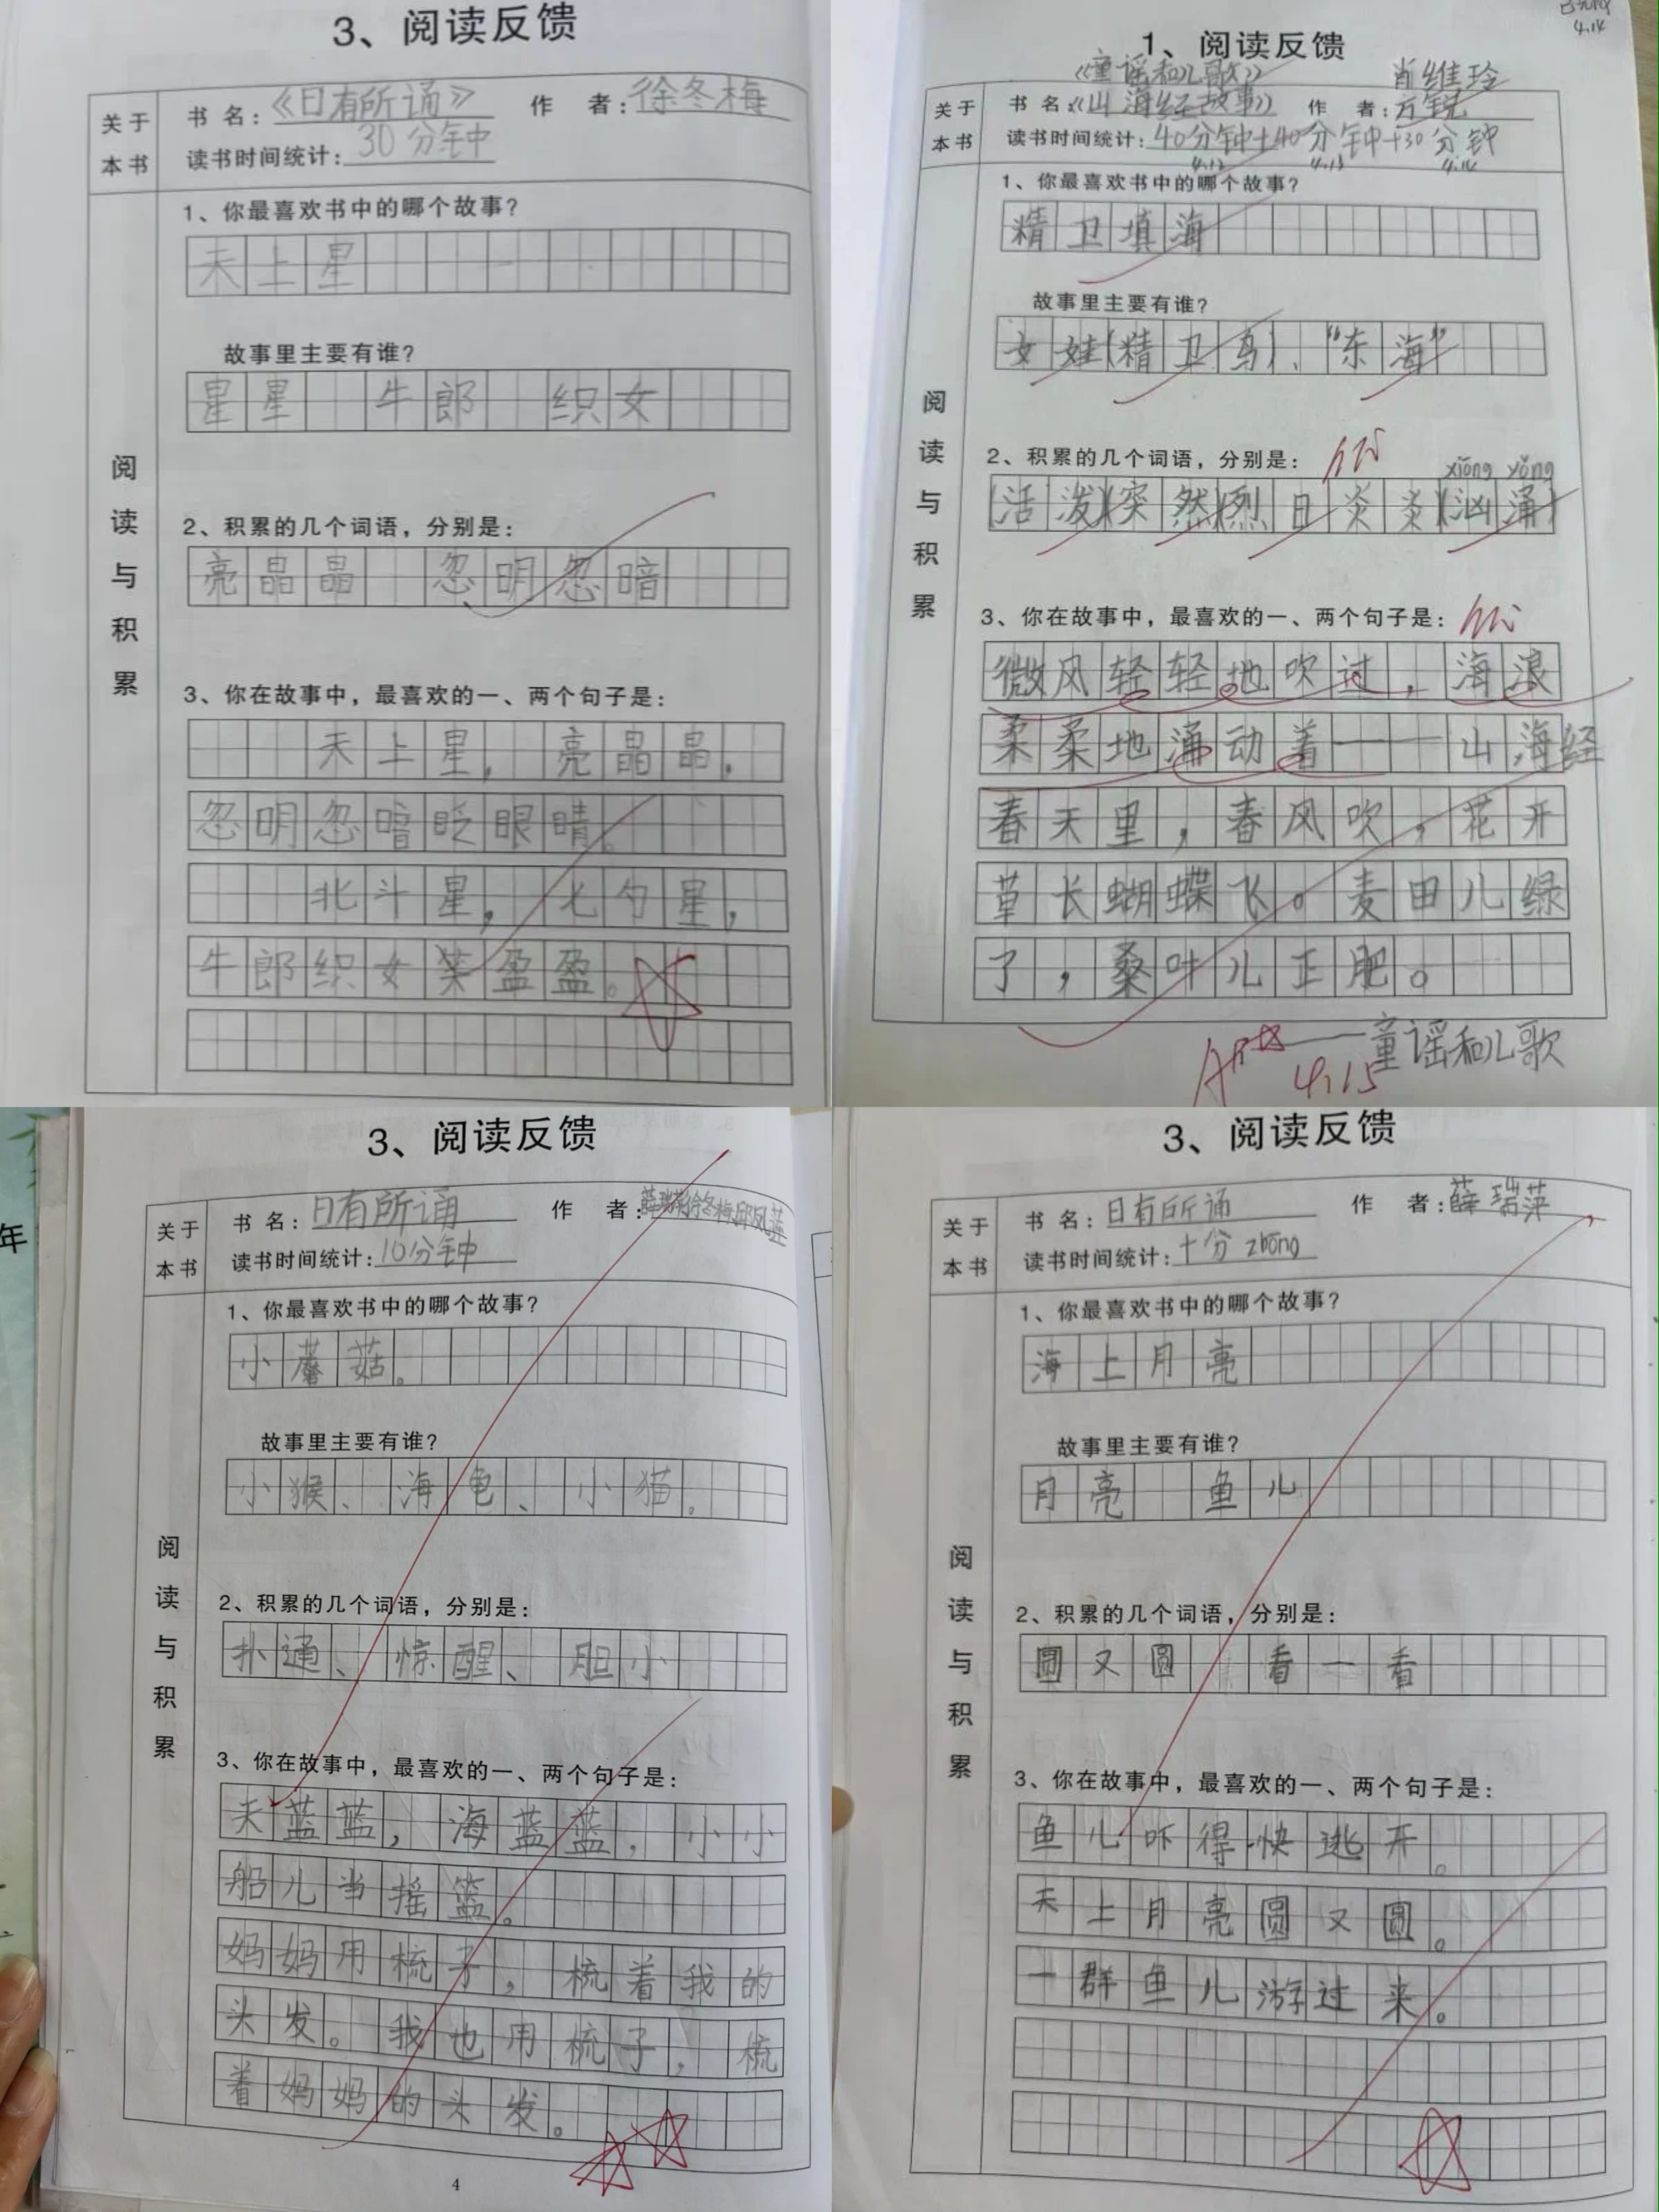 3、阅读反馈
关于本书
书 名：《日有所诵》 作 者：徐冬梅
读书时间统计：30分钟
阅读与积累
1、你最喜欢书中的哪个故事？
天上星
故事里主要有谁？
星星 牛郎 织女
2、积累的几个词语，分别是：
亮晶晶 忽明忽暗
3、你在故事中，最喜欢的一、两个句子是：
天上星，亮晶晶，
忽明忽暗眨眼睛。
北斗星，七勺星，
牛郎织女笑盈盈。
1、阅读反馈
4.14
《童谣和儿歌》 肖维玲
关于本书
书 名：《山海经故事》 作 者：方锐
读书时间统计：40分钟+40分钟+30分钟
4.12 4.13 4.14
阅读与积累
1、你最喜欢书中的哪个故事？
精卫填海
故事里主要有谁？
女娃(精卫鸟)、“东海”
2、积累的几个词语，分别是：
xiōng yǒng
(活泼)(突然)(烈日炎炎)(汹涌)
3、你在故事中，最喜欢的一、两个句子是：
微风轻轻地吹过，海浪
柔柔地涌动着——山海经
春天里，春风吹，花开
草长蝴蝶飞。麦田儿绿
了，桑叶儿正肥。
——童谣和儿歌
4.15
3、阅读反馈
关于本书
书 名：日有所诵 作 者：薛瑞萍徐冬梅邱凤莲
读书时间统计：10分钟
阅读与积累
1、你最喜欢书中的哪个故事？
小蘑菇。
故事里主要有谁？
小猴、海龟、小猫。
2、积累的几个词语，分别是：
扑通、惊醒、胆小
3、你在故事中，最喜欢的一、两个句子是：
天蓝蓝，海蓝蓝，小小
船儿当摇篮。
妈妈用梳子，梳着我的
头发。我也用梳子，梳
着妈妈的头发。
4
3、阅读反馈
关于本书
书 名：日有所诵 作 者：薛瑞萍
读书时间统计：十分zhōng
阅读与积累
1、你最喜欢书中的哪个故事？
海上月亮
故事里主要有谁？
月亮 鱼儿
2、积累的几个词语，分别是：
圆又圆 看一看
3、你在故事中，最喜欢的一、两个句子是：
鱼儿吓得快逃开。
天上月亮圆又圆。
一群鱼儿游过来。
年